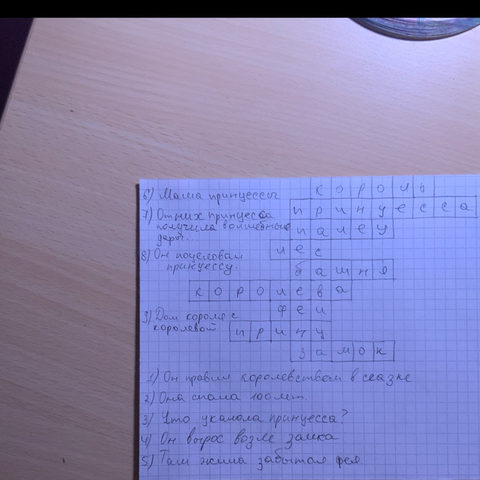 6) Мама принцессы
король
7) От них принцесса
получила волшебные
дары.
принцесса
палец
8) Он поцеловал
принцессу.
лес
башня
королева
феи
3) Дом короля с
королевой
принц
замок
1) Он правил королевством в сказке
2) Она спала 100 лет.
3) Что уколола принцесса?
4) Он вырос возле замка
5) Там жила забытая фея